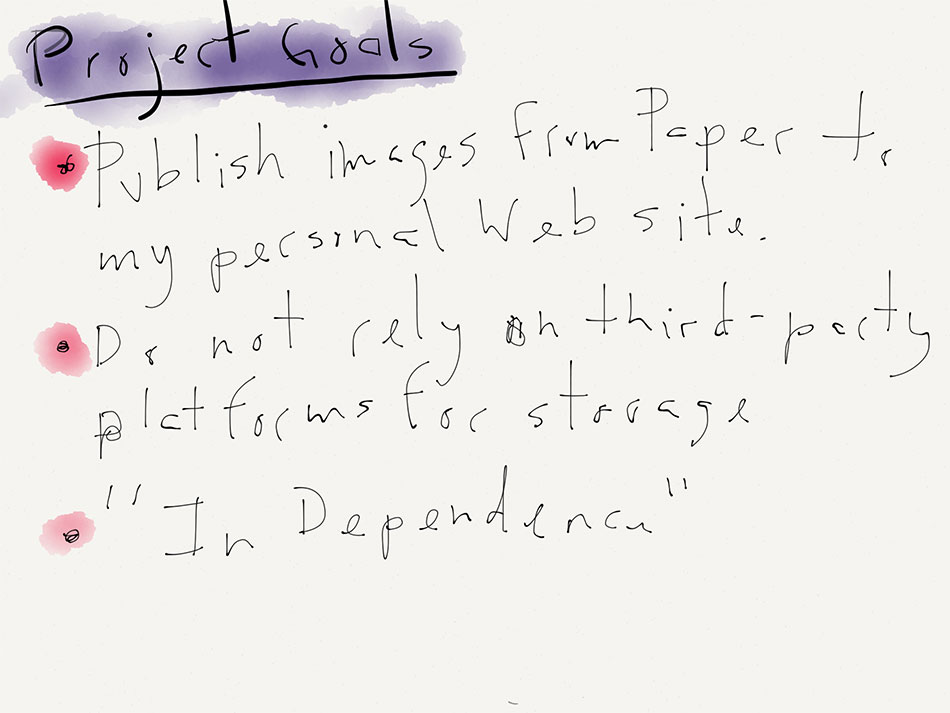 Project Goals
Publish images from Paper to
my personal Web site.
Do not rely on third-party
platforms for storage
"In Dependence"